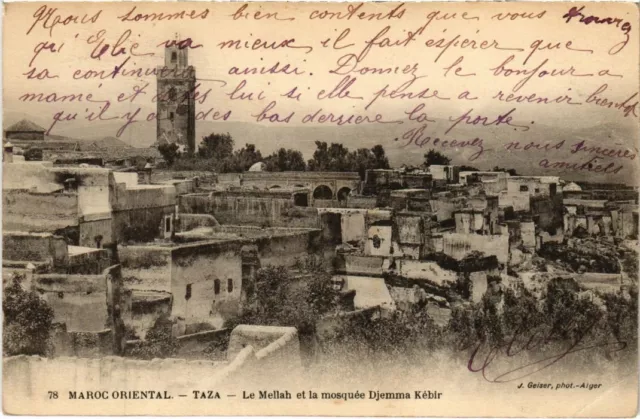 Nous sommes bien contents que vous trouvez
qu'Elie va mieux il fait espérer que
sa continuera aussi. Donnez le bonjour a
mamé et dites lui si elle pense a revenir bientôt
qu'il y a des bas derriere la porte.
Recevez nous sincères
amitiés
78 MAROC ORIENTAL. — TAZA — Le Mellah et la mosquée Djemma Kébir
J. Geiser, phot.-Alger